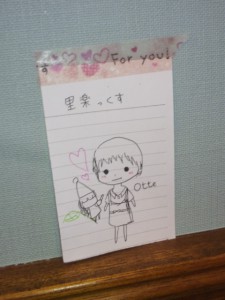 For you!
里楽っくす
Otto